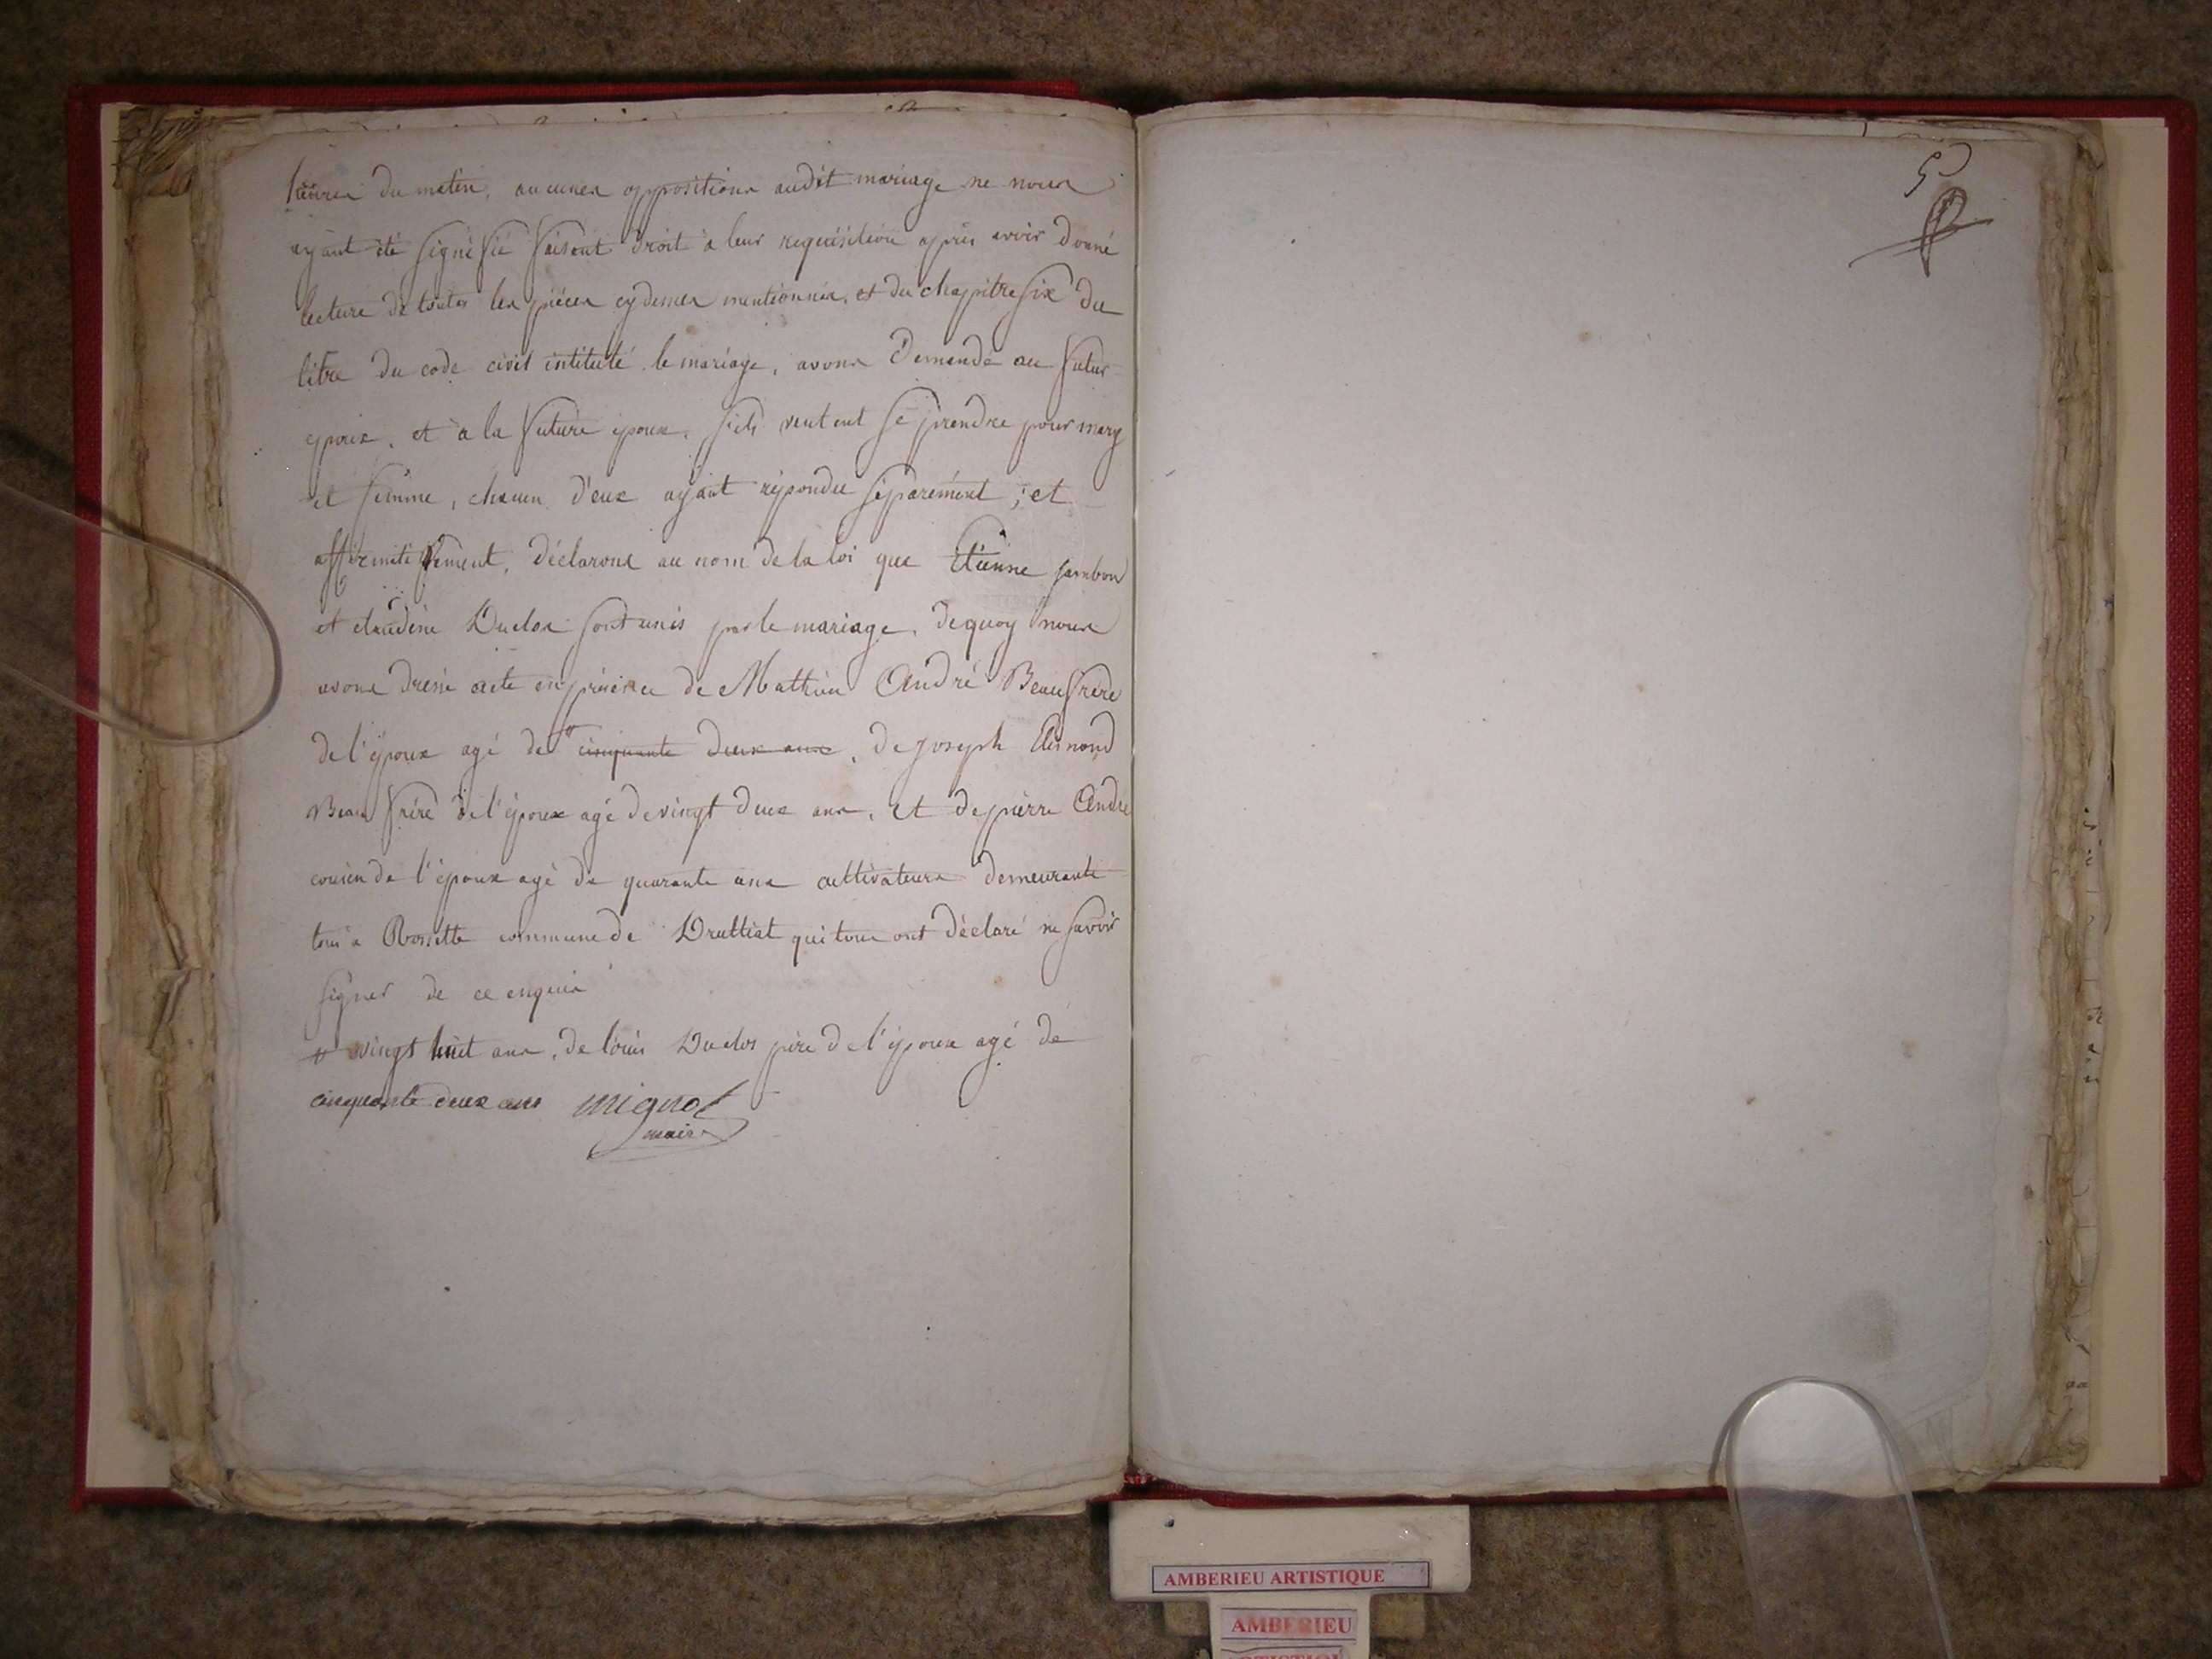 heures du matin, aucunes oppositions audit mariage ne nous
ayant été signifié faisant droit à leur requisition après avoir donné
lecture de toutes les pièces cydesses mentionnées, et du chapitre six du
titre du code civil intitulé le mariage, avons demandé au futur
epoux, et à la future épouse, s'ils veulent se prendre pour mary
et femme, chacun d'eux ayant répondu séparément, et
affirmativement, déclarons au nom de la loi que Etienne jambon
et claudine Duclos sont unis par le mariage, de quoy nous
avons dressé acte en présence de Mathieu André Beaufrère
de l'époux agé de # cinquante deux ans, de joseph
Beau frère de l'époux agé de vingt deux ans, et de pierre André
cousin de l'époux agé de quarante ans cultivateurs demeurants
tous à Rossette commune de Druilliat qui tous ont déclaré ne savoir
signer de ce enquis
# vingt huit ans, de louis Duclos père de l'épouse agé de
cinquante deux ans mignot
maire
5
AMBERIEU ARTISTIQUE
AMBERIEU